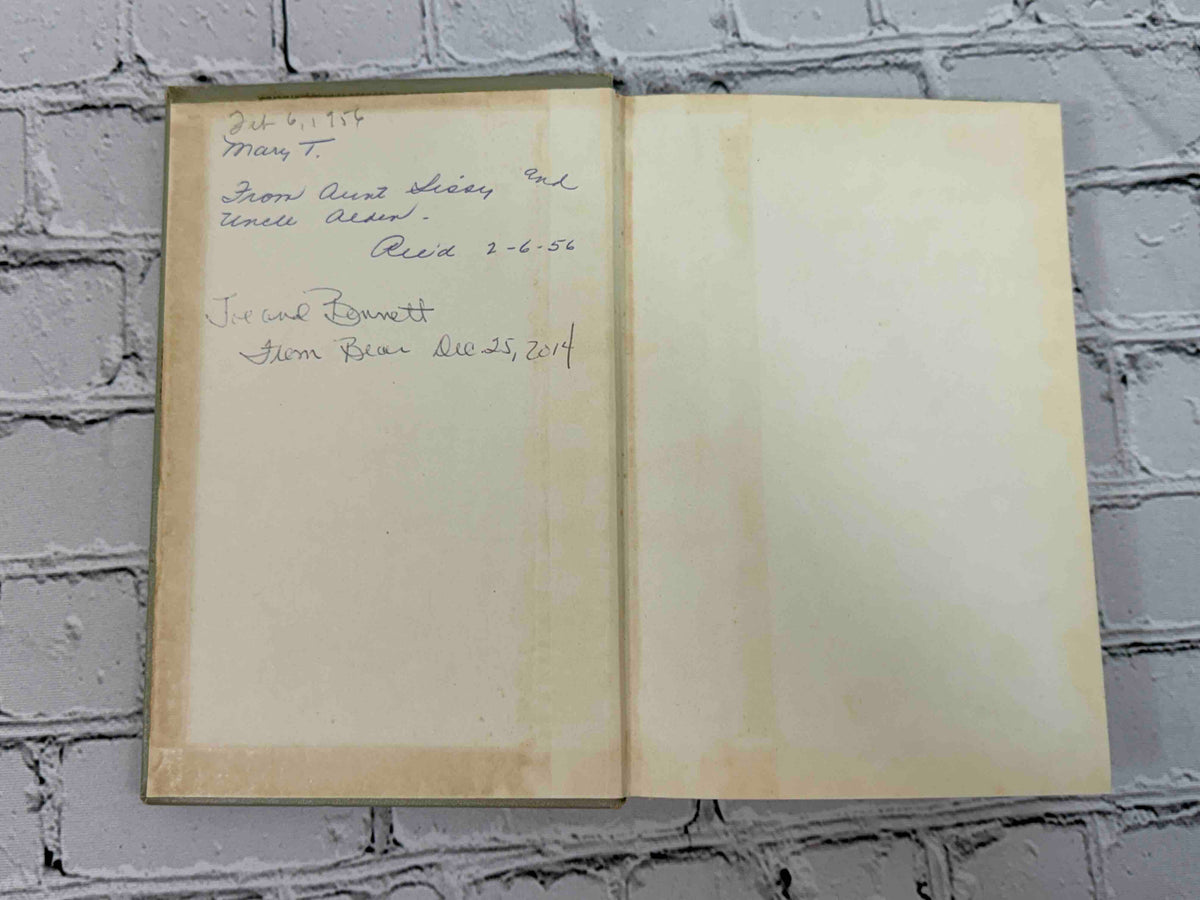 Feb 6, 1956
Mary T.
From Aunt Sissy and
Uncle Alden.
Rec'd 2-6-56
Joe and Bennett
From Bear Dec. 25, 2014